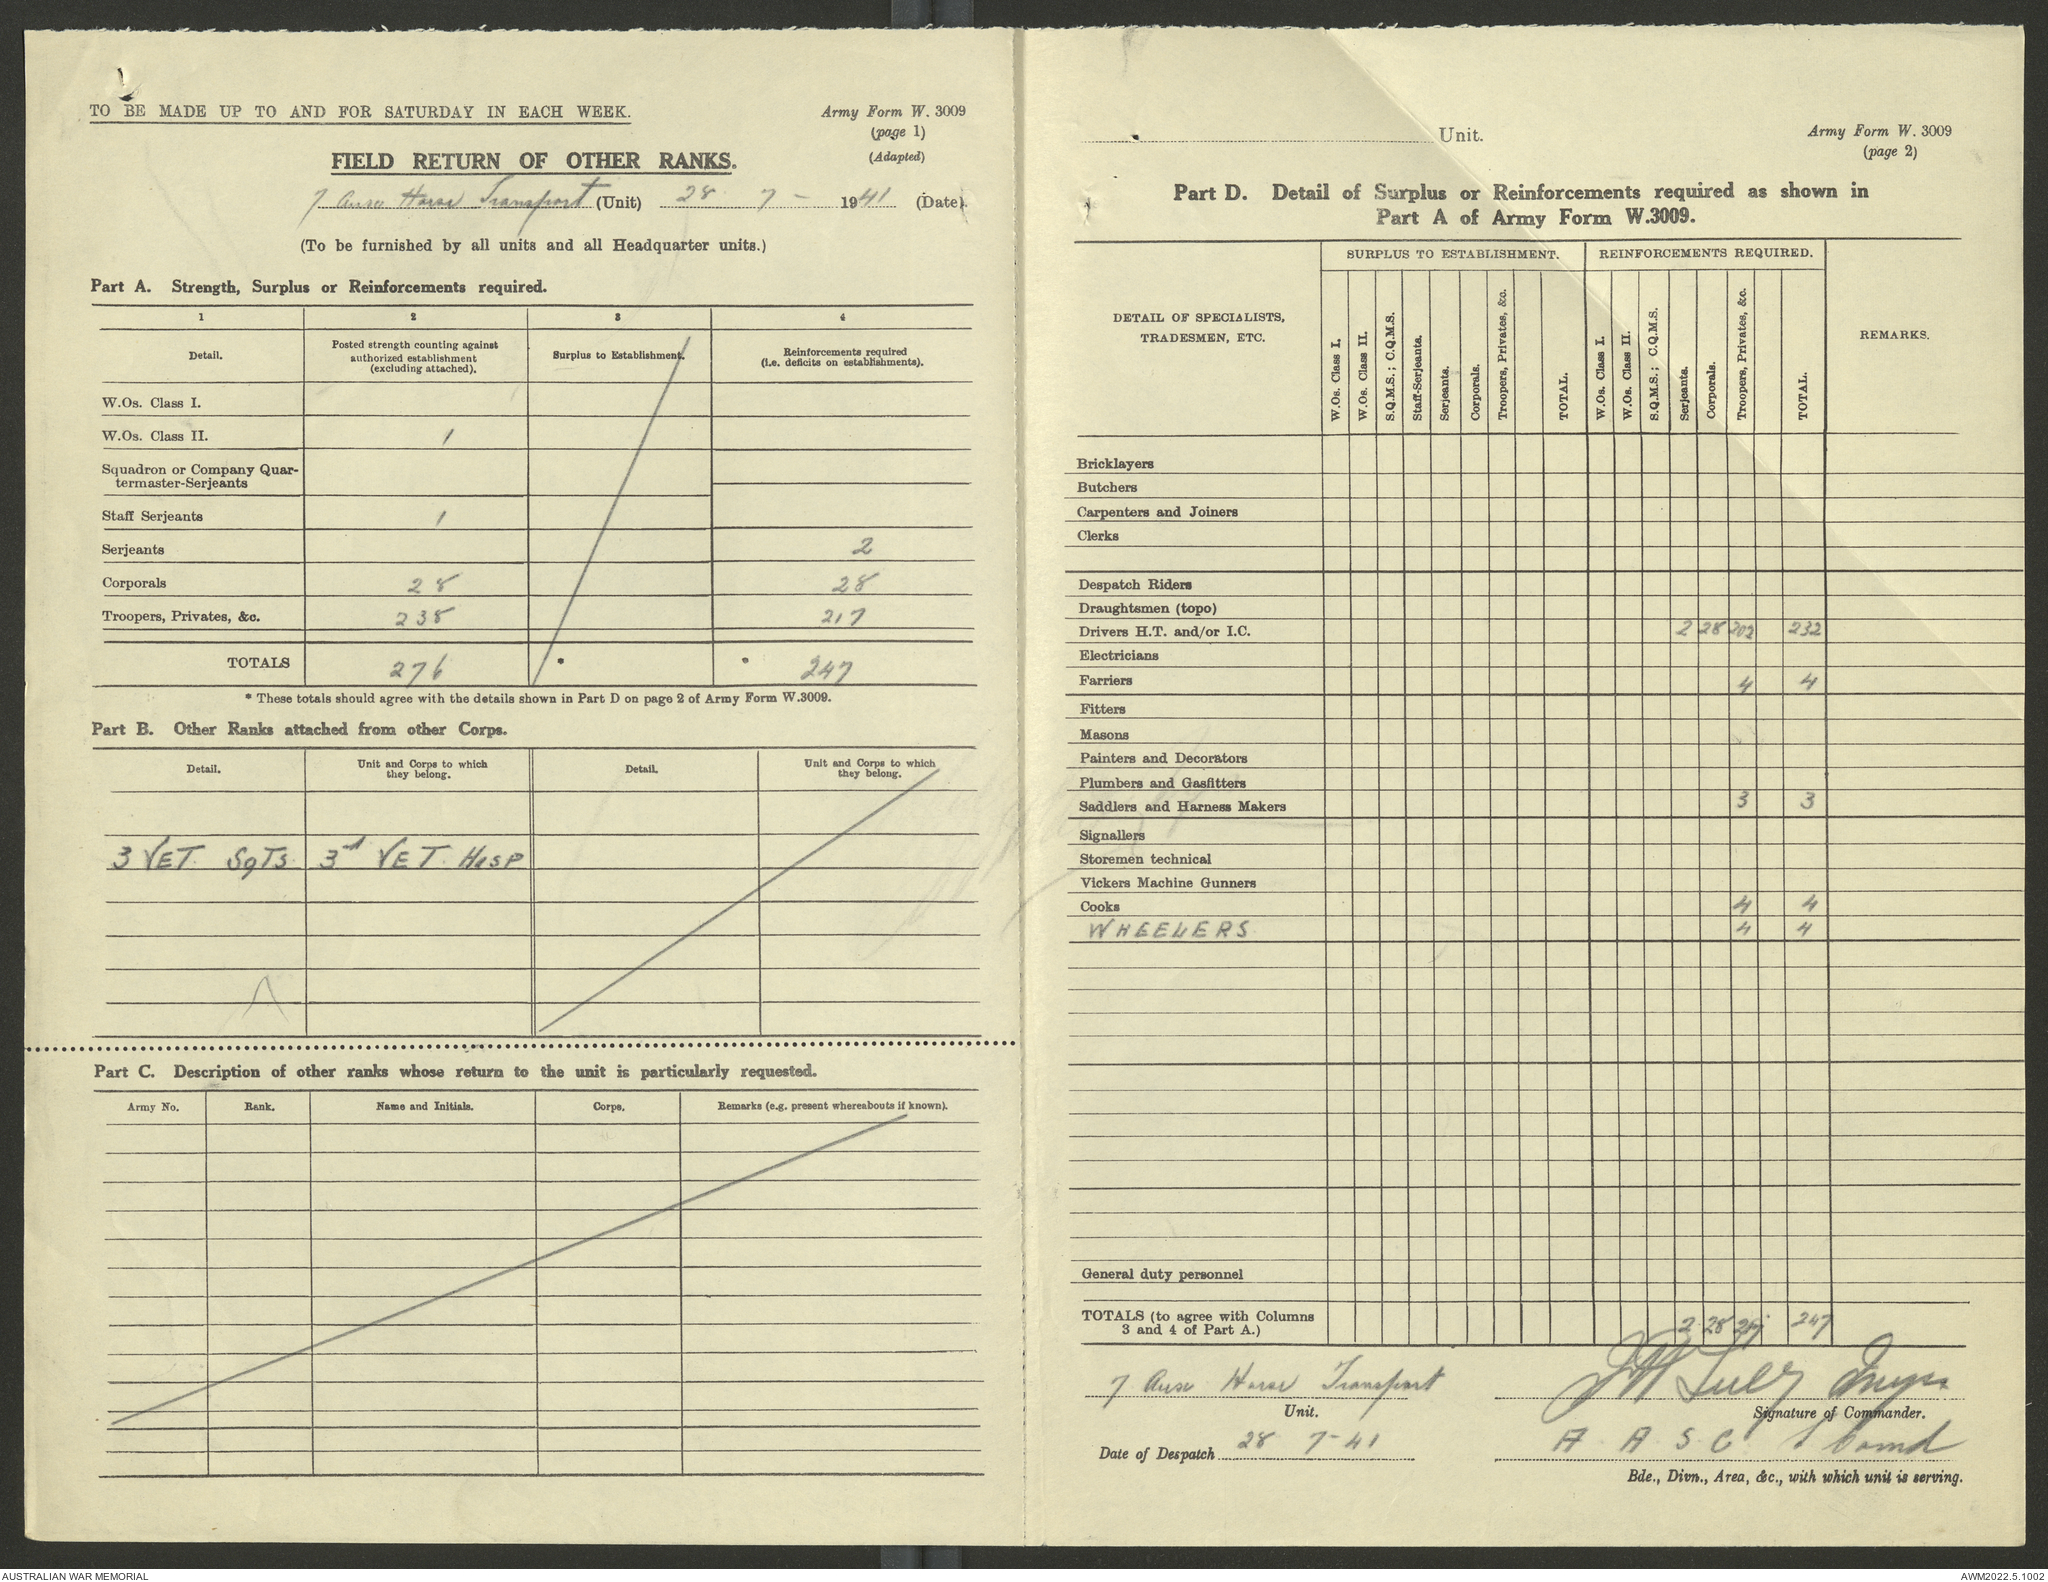 TO BE MADE UP TO AND FOR SATURDAY IN EACH WEEK.
Army Form W. 3009
(page 1)
(Adapted)
FIELD RETURN OF OTHER RANKS.
7 Horse Transport (Unit) 28 7 - 1941 (Date).
(To be furnished by all units and all Headquarter units.)
Part A. Strength, Surplus or Reinforcements required.
1 2 3 4
Detail. Posted strength counting against authorized establishment (excluding attached). Surplus to Establishment. Reinforcements required (i.e. deficits on establishments).
W.Os. Class I.
W.Os. Class II. 1
Squadron or Company Quar-
termaster-Serjeants
Staff Serjeants 1
Serjeants 2
Corporals 28 28
Troopers, Privates, &c. 238 217
TOTALS 276 * * 247
* These totals should agree with the details shown in Part D on page 2 of Army Form W.3009.
Part B. Other Ranks attached from other Corps.
Detail. Unit and Corps to which they belong. Detail. Unit and Corps to which they belong.
3 VET. SgTS 3rd VET HOSP
Part C. Description of other ranks whose return to the unit is particularly requested.
Army No. Rank. Name and Initials. Corps. Remarks (e.g. present whereabouts if known).
Unit.
Army Form W. 3009
(page 2)
Part D. Detail of Surplus or Reinforcements required as shown in
Part A of Army Form W.3009.
DETAIL OF SPECIALISTS, TRADESMEN, ETC. SURPLUS TO ESTABLISHMENT. REINFORCEMENTS REQUIRED. REMARKS.
W.Os. Class I. W.Os. Class II. S.Q.M.S.; C.Q.M.S. Staff-Serjeants. Serjeants. Corporals. Troopers, Privates, &c. TOTAL. W.Os. Class I. W.Os. Class II. S.Q.M.S.; C.Q.M.S. Serjeants. Corporals. Troopers, Privates, &c. TOTAL.
Bricklayers
Butchers
Carpenters and Joiners
Clerks
Despatch Riders
Draughtsmen (topo)
Drivers H.T. and/or I.C. 2 28 202 232
Electricians
Farriers 4 4
Fitters
Masons
Painters and Decorators
Plumbers and Gasfitters
Saddlers and Harness Makers 3 3
Signallers
Storemen technical
Vickers Machine Gunners
Cooks 4 4
WHEELERS 4 4
General duty personnel
TOTALS (to agree with Columns
3 and 4 of Part A.) 2 28 217 247
7 Horse Transport
Unit.
Signature of Commander.
Date of Despatch 28 7-41
A. A. S. C.
Bde., Divn., Area, &c., with which unit is serving.
AUSTRALIAN WAR MEMORIAL
AWM2022.5.1002